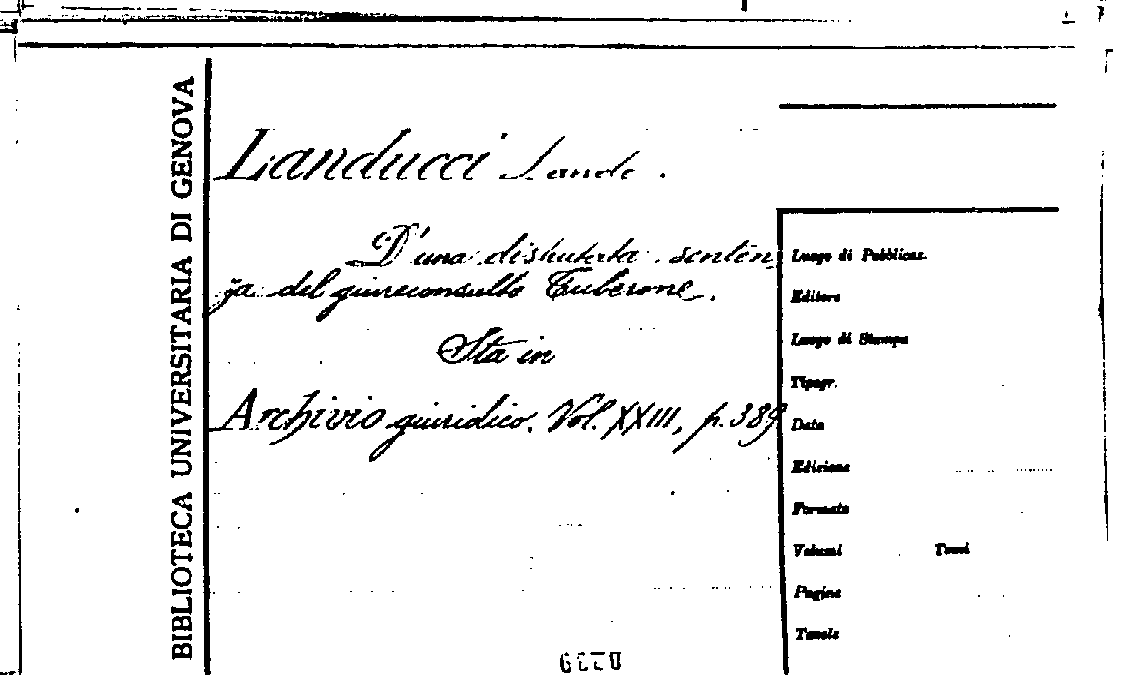 BIBLIOTECA UNIVERSITARIA DI GENOVA
Landucci Lando.
D'una disputata senten
za del giureconsulto Tuberone.
Sta in
Archivio giuridico. Vol. XXIII, p. 389
Luogo di Pubblicaz.
Editore
Luogo di Stampa
Tipogr.
Data
Edizione
Formato
Volumi Tomi
Pagine
Tavole